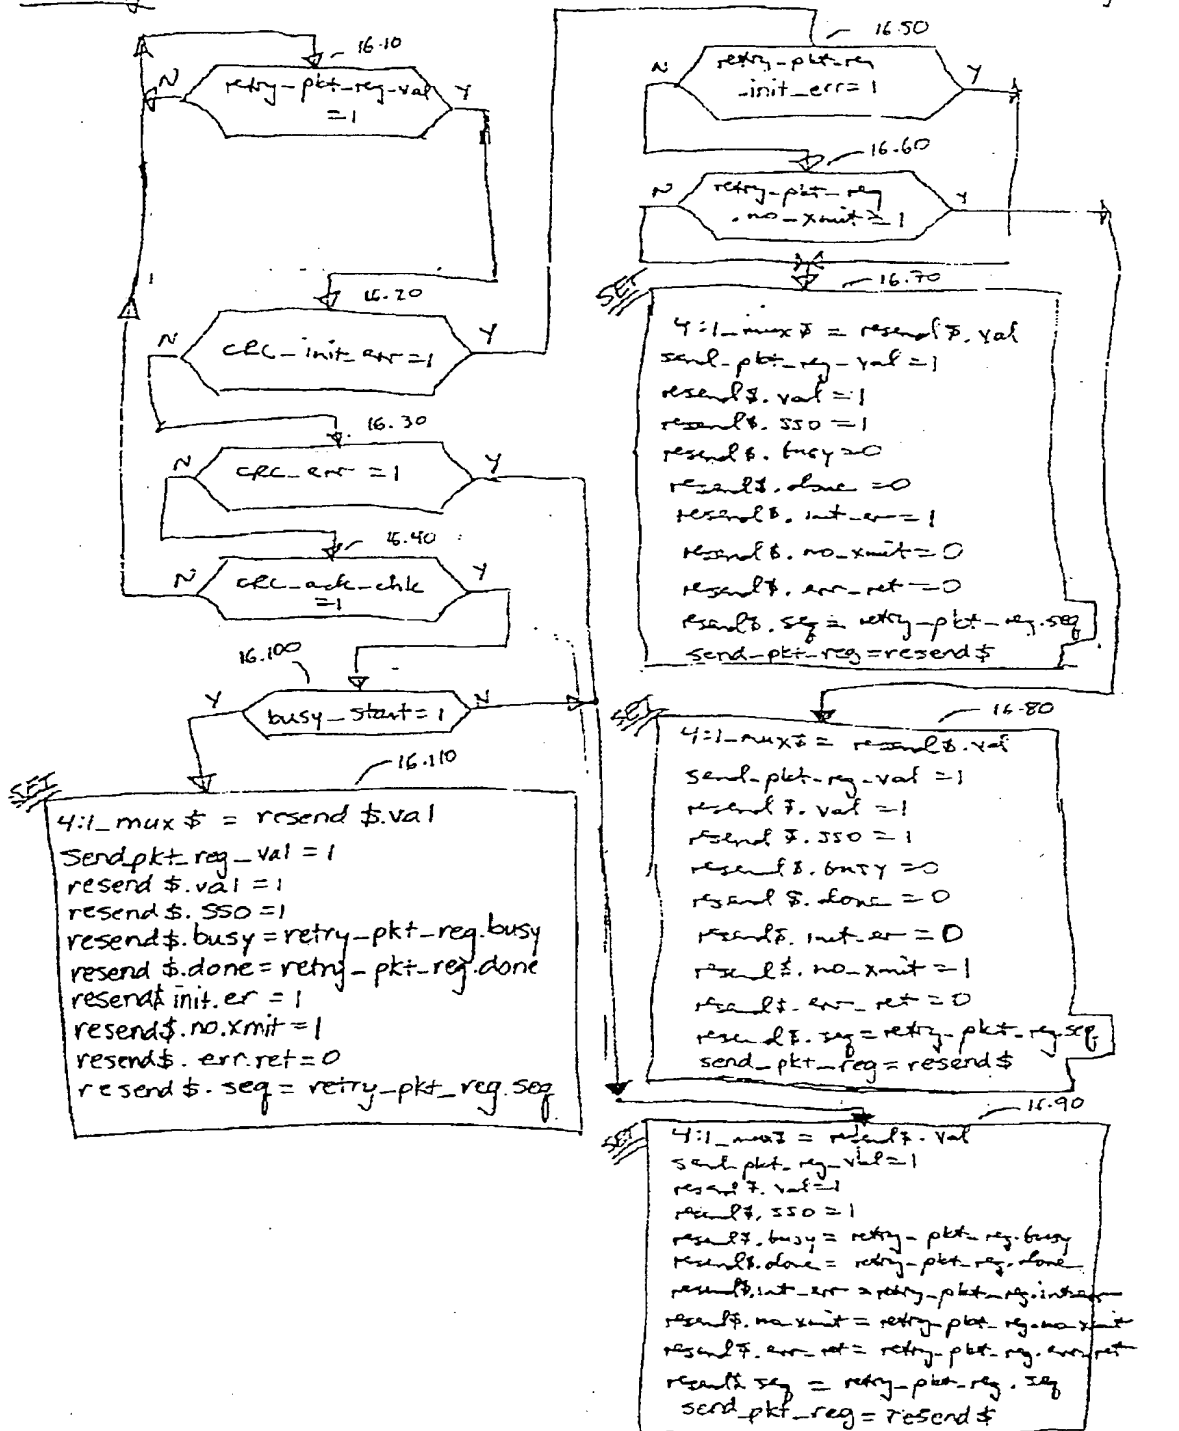 16.10
retry-pkt-reg-val
=1
N
Y
16.20
CRC_init_err=1
N
Y
16.30
CRC_err=1
N
Y
16.40
CRC_ack_chk
=1
N
Y
16.100
busy_start=1
Y
N
16.110
SET
4:1_mux$ = resend $.val
Send_pkt_reg_val = 1
resend $.val = 1
resend $. SSO =1
resend$.busy=retry_pkt_reg.busy
resend $.done=retry_pkt_reg.done
resend$ init.er = 1
resend$.no.xmit=1
resend$. err.ret=0
resend$. seq = retry_pkt_reg.seq
16.50
retry-pkt-reg
-init_err=1
N
Y
16.60
retry-pkt-reg
.no_xmit=1
N
Y
16.70
SET
4:1_mux$ = resend$.val
send_pkt_reg_val=1
resend$.val=1
resend$. SSO=1
resend$. busy=0
resend$.done=0
resend$. int_er=1
resend$. no_xmit=0
resend$. err_ret=0
resend$. seq = retry_pkt_reg.seq
send_pkt_reg=resend$
16.80
SET
4:1_mux$= resend$.val
send-pkt-reg-val=1
resend $. val=1
resend $.SSO=1
resend$. busy=0
resend $.done=0
resend$. init_er=0
resend$. no_xmit=1
resend$. err_ret=0
resend$. seq=retry_pkt_reg.seq
send_pkt_reg=resend$
16.90
SET
4:1_mux$ = resend$. val
send pkt_reg_val=1
resend $. val=1
resend$, SSO=1
resend$.busy= retry-pkt-reg.busy
resend$.done= retry-pkt-reg.done
resend$.int_err=retry-pkt-reg.int_err
resend$. no xmit=retry-pkt-reg.no xmit
resend$. err_ret= retry-pkt-reg.err_ret
resend$ seq = retry-pkt-reg. seq
send_pkt_reg=resend$